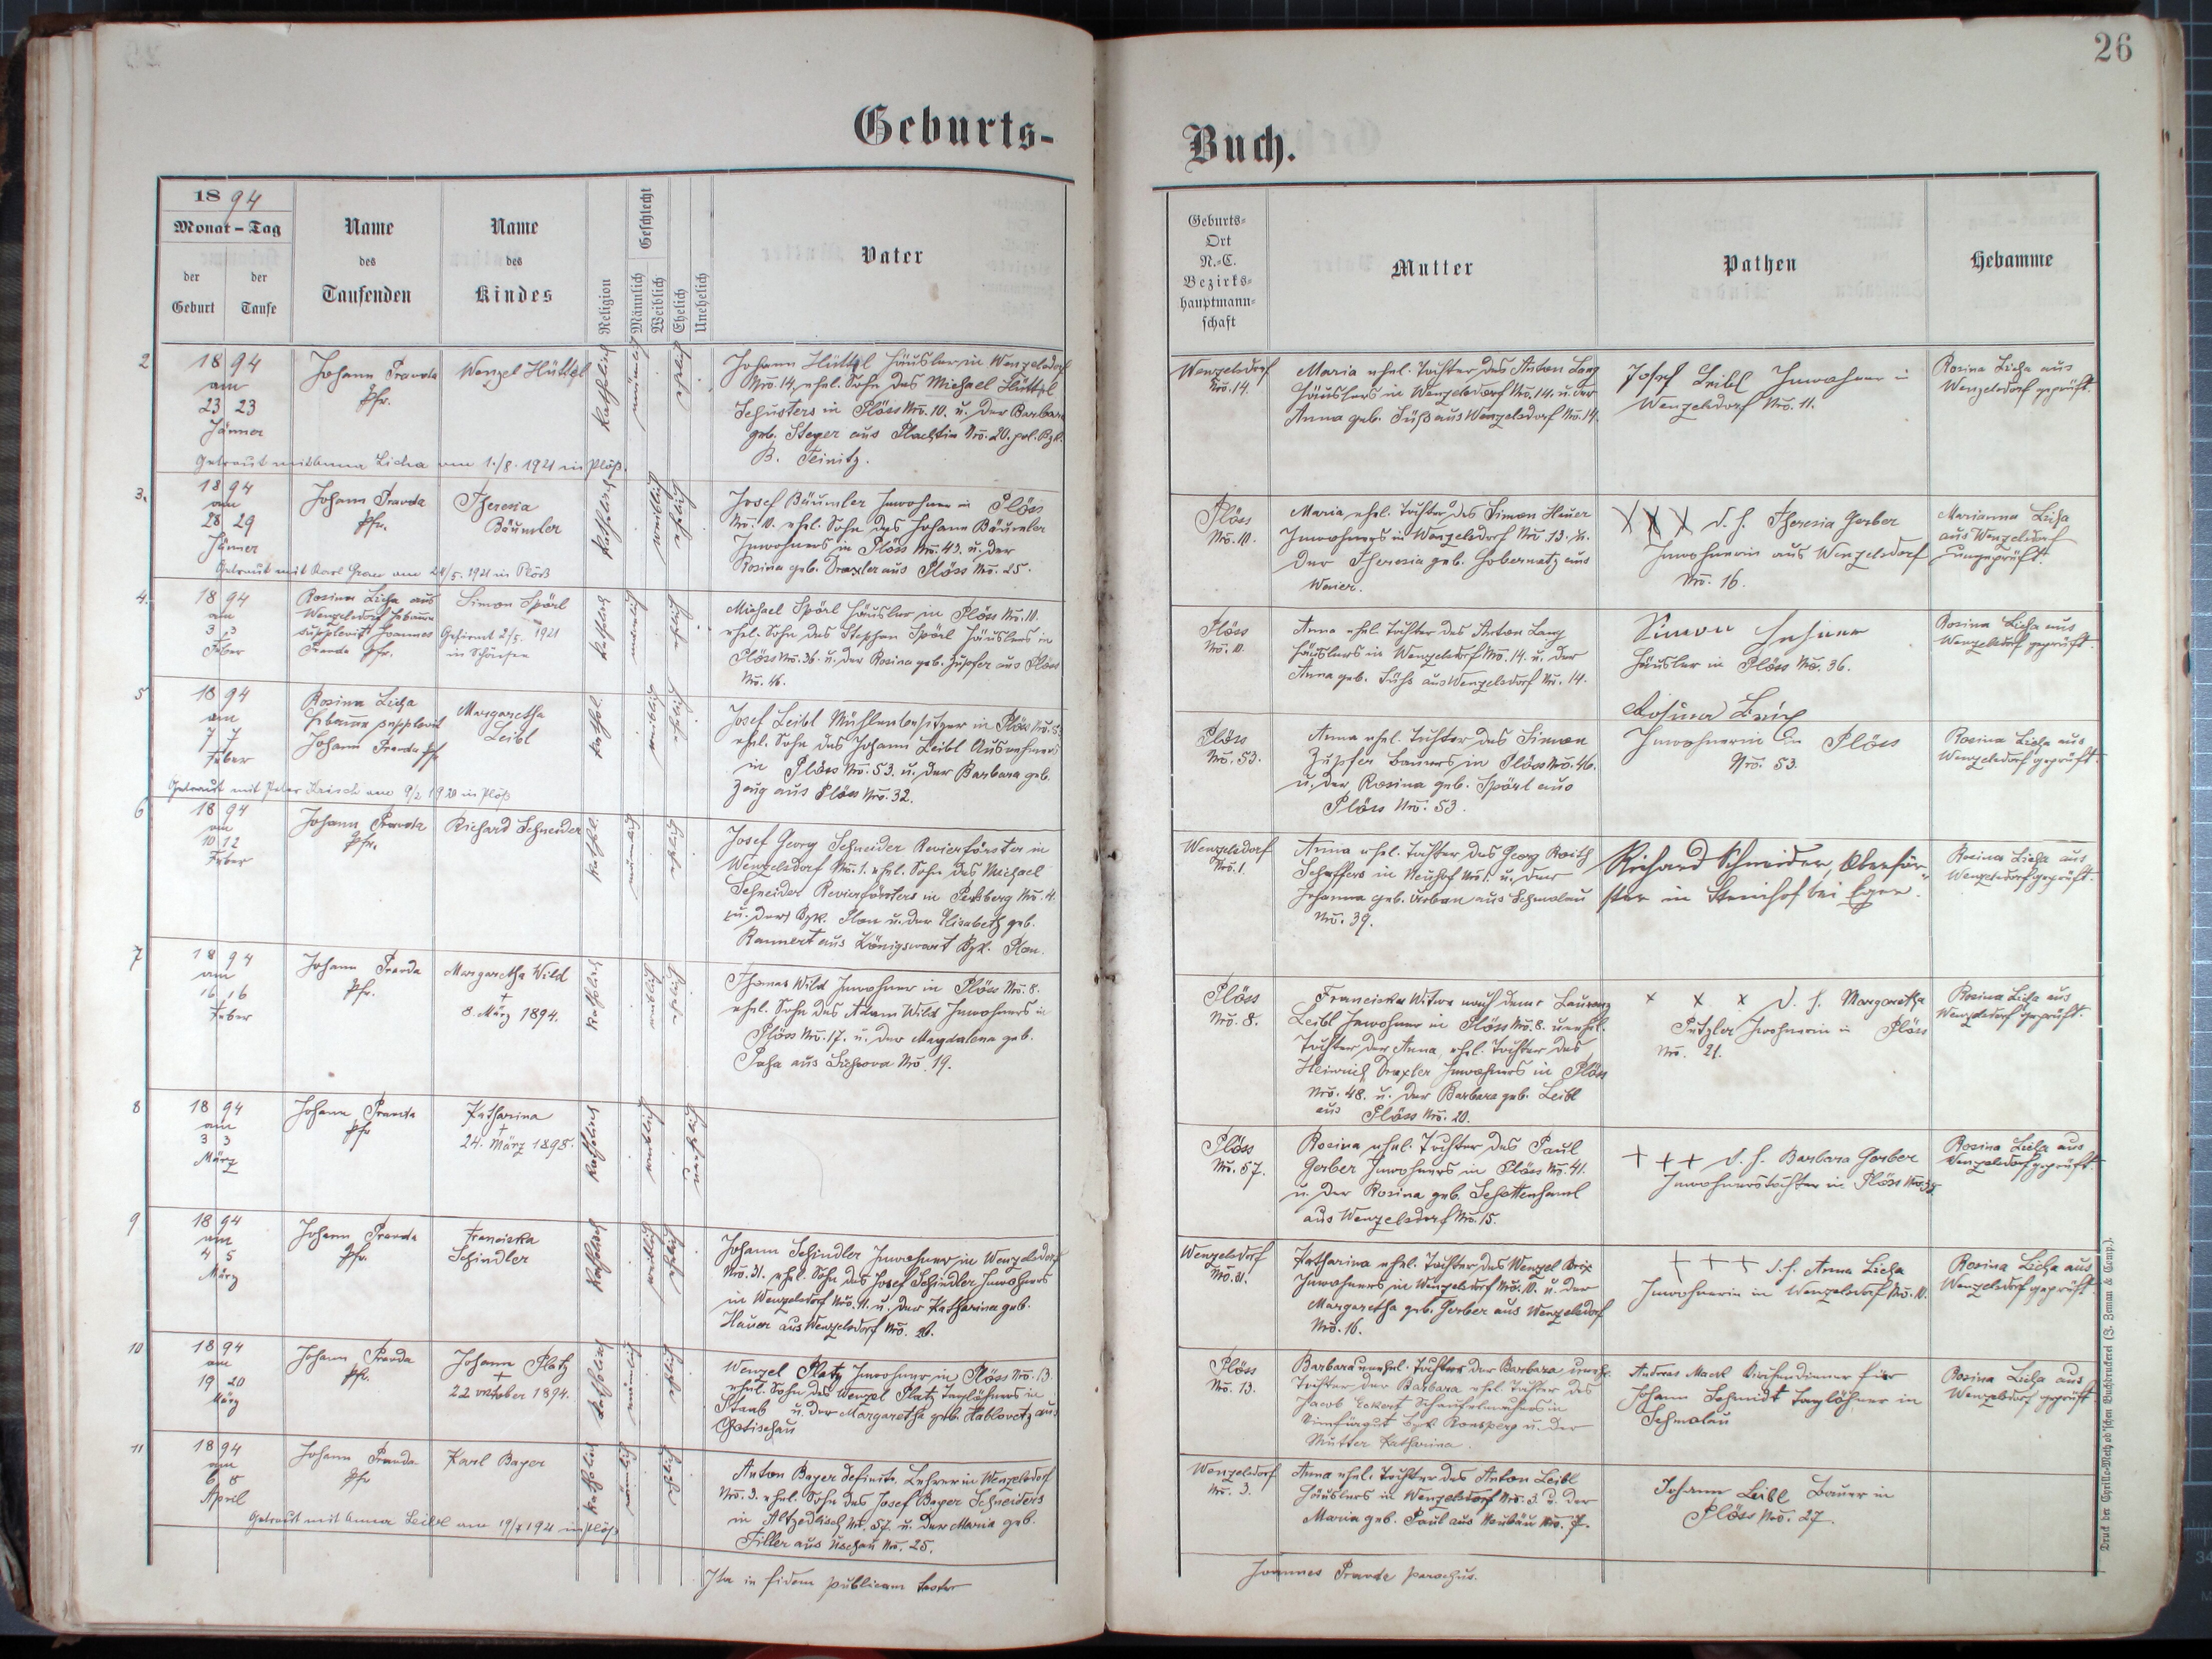 26
Geburts-
Buch.
1894
Monat – Tag
der Geburt
der Taufe
Name des Taufenden
Name des Kindes
Religion
Geschlecht
Männlich
Weiblich
Ehelich
Unehelich
Vater
Geburts-
Ort
N.-C.
Bezirks-
hauptmann-
schaft
Mutter
Pathen
Hebamme
2
1894
am
23 23
Jänner
Johann Pravda
Pfr.
Wenzel Hüttl
Katholisch
männlich
ehelich
Johann Hüttl Häusler in Wenzelsdorf
Nro. 14, ehel. Sohn des Michael Hüttl
Schusters in Plöss Nro. 10. u. der Barbara
geb. Steyer aus Nro. 20. pol. Bzk.
B. Teinitz.
Getraut mit Anna Licha am 1./8. 1921 in Plöß.
Wenzelsdorf
Nro. 14.
Maria ehel. Tochter des Anton Lang
Häuslers in Wenzelsdorf Nro. 14. u. der
Anna geb. Süß aus Wenzelsdorf Nro. 14.
Josef Leibl Inwohner in
Wenzelsdorf Nro. 11.
Rosina Licha aus
Wenzelsdorf geprüft.
3.
1894
am
28 29
Jänner
Johann Pravda
Pfr.
Theresia
Bäumler
Katholisch
weiblich
Eheliche
Josef Bäumler Inwohner in Plöss
Nro. 10. ehel. Sohn des Johann Bäumler
Inwohners in Plöss Nro. 43. u. der
Rosina geb. Drexler aus Plöss Nro. 25.
Getraut mit Karl am 24/5. 1921 in Plöß
Plöss
Nro. 10.
Maria ehel. Tochter des Simon Heuer
Inwohners in Wenzelsdorf Nro 13. u.
der Theresia geb. aus
Weier.
XXX d. h. Theresia Gerber
Inwohnerin aus Wenzelsdorf
Nro. 16.
Marianna Licha
aus Wenzelsdorf
ungeprüft.
4.
1894
am
3 3
Feber
Rosina Licha aus
Wenzelsdorf Hebamme
supplevit Joannes
Pravda Pfr.
Simon Spörl
Gefirmt 2/5. 1921
in
Katholisch
männlich
Michael Spörl Häusler in Plöss Nro. 10.
ehel. Sohn des Stephan Spörl Häuslers in
Plöss Nro. 36. u. der Rosina geb. Zupfer aus Plöss
Nro. 46.
Plöss
Nro. 10.
Anna ehel. Tochter des Anton Lang
Häuslers in Wenzelsdorf Nro. 14. u. der
Anna geb. Süß aus Wenzelsdorf Nro. 14.
Simon
Häusler in Plöss Nro. 36.
Rosina Licha aus
Wenzelsdorf geprüft.
5
1894
am
7 7
Feber
Rosina Licha
Hebamme supplevit
Johann Pravda Pfr
Margaretha
Leibl
kathol.
weiblich
Josef Leibl Mühlenbesitzer in Plöss Nro. 53
ehel. Sohn des Johann Leibl
in Plöss Nro. 53. u. der Barbara geb.
Zeug aus Plöss Nro. 32.
Getraut mit Peter am 9/2 1920 in Plöß
Plöss
Nro. 53.
Anna ehel. Tochter des Simon
Zupfer Bauers in Plöss Nro. 46.
u. der Rosina geb. Spörl aus
Plöss Nro. 53.
Rosina
Inwohnerin in Plöss
Nro. 53.
Rosina Licha aus
Wenzelsdorf geprüft.
6
1894
am
10 12
Feber
Johann Pravda
Pfr.
Richard Schneider
kathol.
männlich
Josef Georg Schneider Revierförster in
Wenzelsdorf Nro. 1. ehel. Sohn des Michael
Schneider Revierförsters in Nro. 4.
Bzk. Plan u. der Elisabeth geb.
Rannert aus Königswart Bzk. Plan.
Wenzelsdorf
Nro. 1.
Anna ehel. Tochter des Georg Roith
Schaffers in Neuhof Nro. 1. u. der
Johanna geb. Urban aus Schmolau
Nro. 39.
Richard Schneider, Oberför-
ster in Steinhof bei Eger.
Rosina Licha aus
Wenzelsdorf geprüft.
7
1894
am
16 16
Feber
Johann Pravda
Pfr.
Margaretha Wild
†
8. März 1894.
Katholisch
weiblich
Thomas Wild Inwohner in Plöss Nro. 8.
ehel. Sohn des Adam Wild Inwohners in
Plöss Nro. 17. u. der Magdalena geb.
aus Nro. 19.
Plöss
Nro. 8.
Franciska Witwe nach dem Laurenz
Leibl Inwohner in Plöss Nro. 8. unehel.
Tochter der Anna, ehel. Tochter des
Heinrich Drexler Inwohners in Plöss
Nro. 48. u. der Barbara geb. Leibl
aus Plöss Nro. 20.
x x x d. h. Margaretha
Putzler Inwohnerin in Plöss
Nro. 21.
Rosina Licha aus
Wenzelsdorf geprüft.
8
1894
am
3 3
März
Johann Pravda
Pfr
Katharina
†
24. März 1895.
Katholisch
weiblich
Plöss
Nro. 57.
Rosina ehel. Tochter des Paul
Gerber Inwohners in Plöss Nro. 41.
u. der Rosina geb. Schottenhaml
aus Wenzelsdorf Nro. 15.
+ + + d. h. Barbara Gerber
Inwohnerstochter in Plöss
Rosina Licha aus
Wenzelsdorf geprüft.
9
1894
am
4 5
März
Johann Pravda
Pfr.
Franciska
Schindler
Katholisch
weiblich
Johann Schindler Inwohner in Wenzelsdorf
Nro. 31. ehel. Sohn des Josef Schindler Inwohners
in Wenzelsdorf Nro. 11. u. der Katharina geb.
Hauer aus Wenzelsdorf Nro. 20.
Wenzelsdorf
Nro. 31.
Katharina ehel. Tochter des Wenzel Brix
Inwohners in Wenzelsdorf Nro. 10. u. der
Margaretha geb. Gerber aus Wenzelsdorf
Nro. 16.
+ + + d. h. Anna Licha
Inwohnerin in Wenzelsdorf Nro. 10.
Rosina Licha aus
Wenzelsdorf geprüft.
10
1894
am
19 20
März
Johann Pravda
Pfr.
Johann Platz
†
22 october 1894.
Katholisch
männlich
Wenzel Platz Inwohner in Plöss Nro. 13.
ehel. Sohn des Wenzel Platz Taglöhners in
Staab u. der Margaretha geb. Hablovetz aus
Chotischau
Plöss
Nro. 13.
Barbara unehel. Tochter der Barbara unehl.
Tochter der Barbara ehel. Tochter des
Jacob Eckert in
Bzk. Ronsperg u. der
Mutter Katharina.
Andreas Mack Kirchendiener für
Johann Schmidt Taglöhner in
Schmolau
Rosina Licha aus
Wenzelsdorf geprüft.
11
1894
am
6 8
April
Johann Pravda
Pfr
Karl Bayer
Katholisch
männlich
Anton Bayer definit. Lehrer in Wenzelsdorf
Nro. 3. ehel. Sohn des Josef Bayer Schneiders
in Altzedlisch Nro. 57. u. der Maria geb.
Filler aus Uschau Nro. 25.
Getraut mit Anna Leibl am 19/7 1921 in Plöß
Wenzelsdorf
Nro. 3.
Anna ehel. Tochter des Anton Leibl
Häuslers in Wenzelsdorf Nro. 3. u. der
Maria geb. Paul aus Neubäu Nro. 7.
Johann Leibl Bauer in
Plöss Nro. 27.
Ita in fidem publicam testor
Joannes Pravda parochus.
Druck der Cyrillo-Method'schen Buchdruckerei (J. Zeman & Comp.).